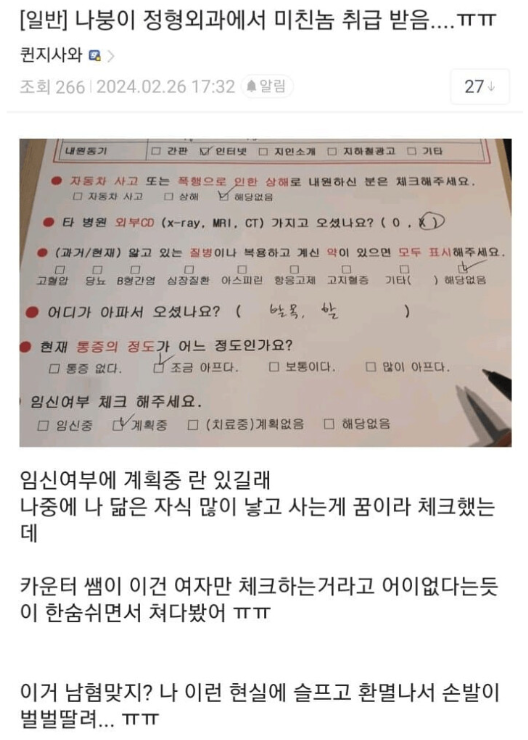 [일반] 나붕이 정형외과에서 미친놈 취급 받음....ㅠㅠ
퀸지사와
조회 266 2024.02.26 17:32 알림
27
내원동기 □ 간판 ☑ 인터넷 □ 지인소개 □ 지하철광고 □ 기타
● 자동차 사고 또는 폭행으로 인한 상해로 내원하신 분은 체크해주세요.
□ 자동차 사고 □ 상해 ☑ 해당없음
● 타 병원 외부CD (x-ray, MRI, CT) 가지고 오셨나요? ( O , X )
● (과거/현재) 앓고 있는 질병이나 복용하고 계신 약이 있으면 모두 표시해주세요.
□ □ □ □ □ □ □ □ ☑
고혈압 당뇨 B형간염 심장질환 아스피린 항응고제 고지혈증 기타( ) 해당없음
● 어디가 아파서 오셨나요? ( 발목, 팔 )
● 현재 통증의 정도가 어느 정도인가요?
□ 통증 없다. ☑ 조금 아프다. □ 보통이다. □ 많이 아프다.
임신여부 체크 해주세요.
□ 임신중 ☑ 계획중 □ (치료중)계획없음 □ 해당없음
임신여부에 계획중 란 있길래
나중에 나 닮은 자식 많이 낳고 사는게 꿈이라 체크했는
데
카운터 쌤이 이건 여자만 체크하는거라고 어이없다는듯
이 한숨쉬면서 쳐다봤어 ㅠㅠ
이거 남혐맞지? 나 이런 현실에 슬프고 환멸나서 손발이
벌벌떨려... ㅠㅠ